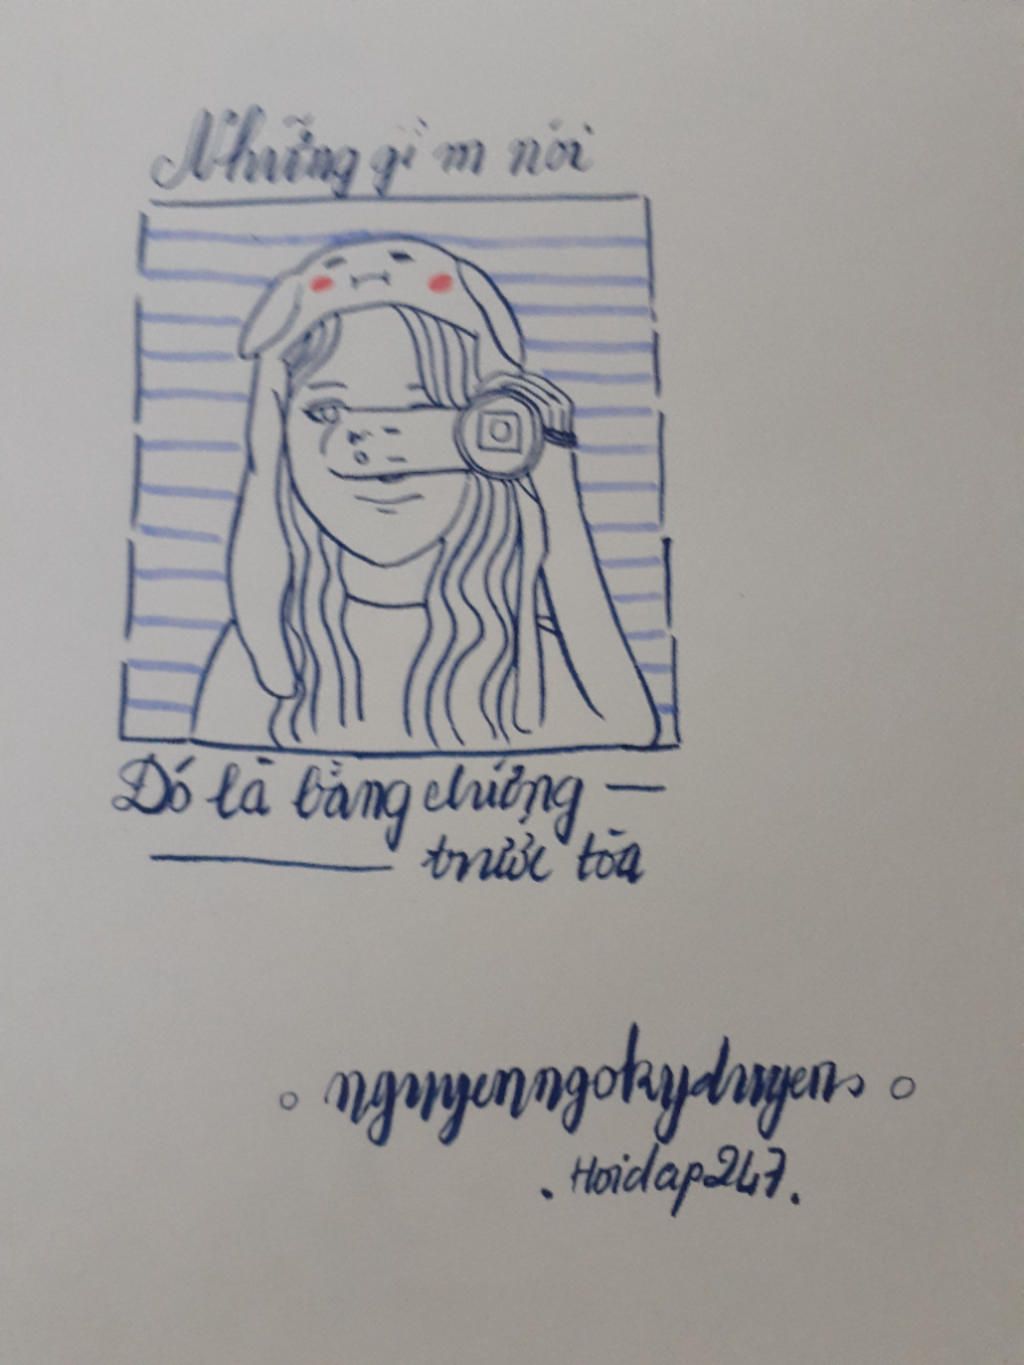 Những gì m nói
Đó là bằng chứng —
— trước tòa
nguyenngokyduyen
.Hoidap247.